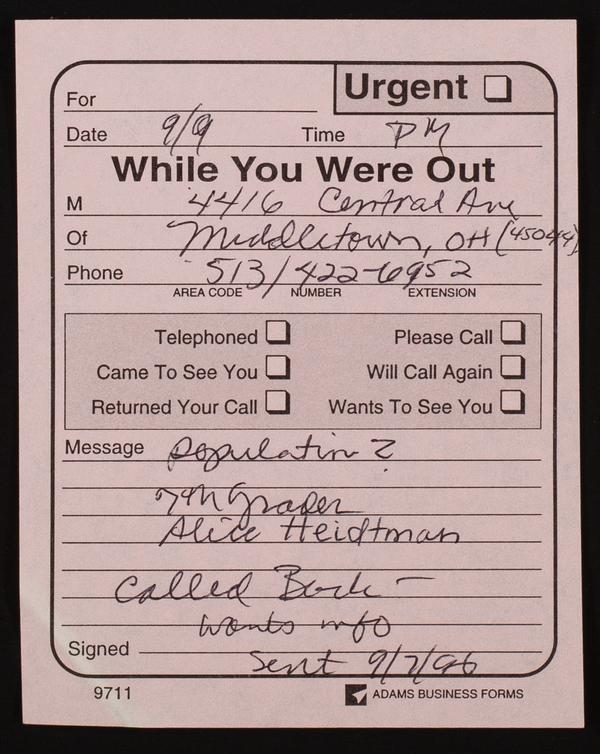 Urgent
For
Date 9/9 Time PM
While You Were Out
M 4416 Central Ave
Of Middletown, OH (45044)
Phone 513/422-6952
AREA CODE NUMBER EXTENSION
Telephoned Please Call
Came To See You Will Call Again
Returned Your Call Wants To See You
Message population?
7th Grader
Alice Heidtman
Called Back -
wants info
Signed
Sent 9/7/96
9711 ADAMS BUSINESS FORMS